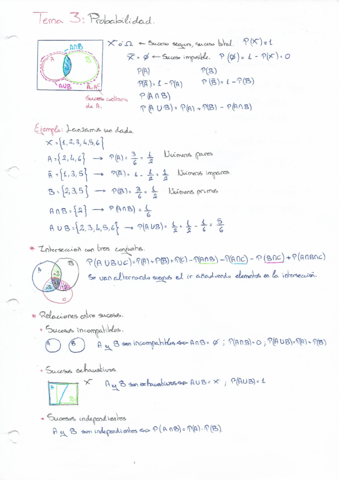 Tema 3: Probabilidad.
X ó Ω ← Suceso seguro, suceso total. P(X)=1
X̄ = ∅ ← Suceso imposible. P(∅) = 1 - P(X) = 0
A∩B
A
B
A∪B
Ā, Aᶜ
Suceso contrario de A.
P(A) P(B)
P(Ā) = 1 - P(A) P(B̄) = 1 - P(B)
P(A∩B)
P(A∪B) = P(A) + P(B) - P(A∩B)
Ejemplo: Lanzamos un dado
X = {1,2,3,4,5,6}
A = {2,4,6} → P(A) = 3/6 = 1/2 Números pares
Ā = {1,3,5} → P(Ā) = 1 - 1/2 = 1/2 Números impares
B = {2,3,5} → P(B) = 3/6 = 1/2 Números primos
A∩B = {2} → P(A∩B) = 1/6
A∪B = {2,3,4,5,6} → P(A∪B) = 1/2 + 1/2 - 1/6 = 5/6
* Intersección con tres conjuntos.
A
B
C
P(A∪B∪C) = P(A)+P(B)+P(C) - P(A∩B) - P(A∩C) - P(B∩C) + P(A∩B∩C)
Se van alternando signos al ir añadiendo elementos en la intersección.
* Relaciones entre sucesos.
• Sucesos incompatibles.
A
B
A y B son incompatibles ⇔ A∩B = ∅ ; P(A∩B)=0 ; P(A∪B)=P(A)+P(B)
• Sucesos exhaustivos
X
A y B son exhaustivos ⇔ A∪B = X ; P(A∪B)=1
• Sucesos independientes
A y B son independientes ⇔ P(A∩B) = P(A)·P(B)